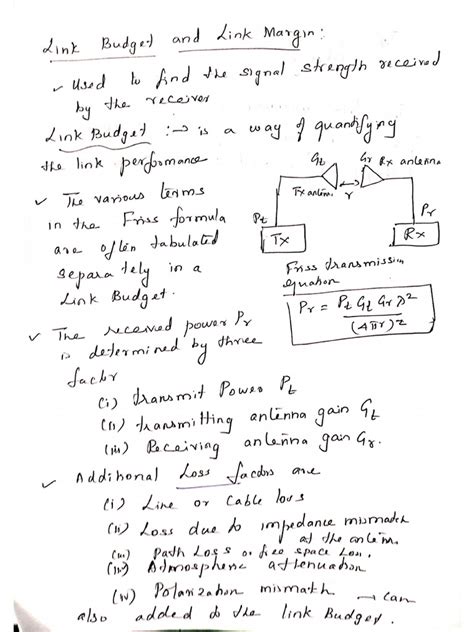 Link Budget and Link Margin:
✓ Used to find the signal strength received
by the receiver
Link Budget :→ is a way of quantifying
the link performance
✓ The various terms
in the Friss formula
are often tabulated
separately in a
Link Budget.
Gt Gr Rx antenna
Tx antenna r
Pt Pr
Tx Rx
Friss transmission
equation
Pr = Pt Gt Gr λ² / (4πr)²
✓ The received power Pr
is determined by three
factor
(i) transmit Power Pt
(ii) transmitting antenna gain Gt
(iii) Receiving antenna gain Gr.
✓ Additional Loss factors are
(i) Line or Cable loss
(ii) Loss due to impedance mismatch
at the antenna.
(iii) Path Loss or free space Loss.
(iv) Atmospheric attenuation
(iv) Polarization mismath → can
also added to the link Budget.